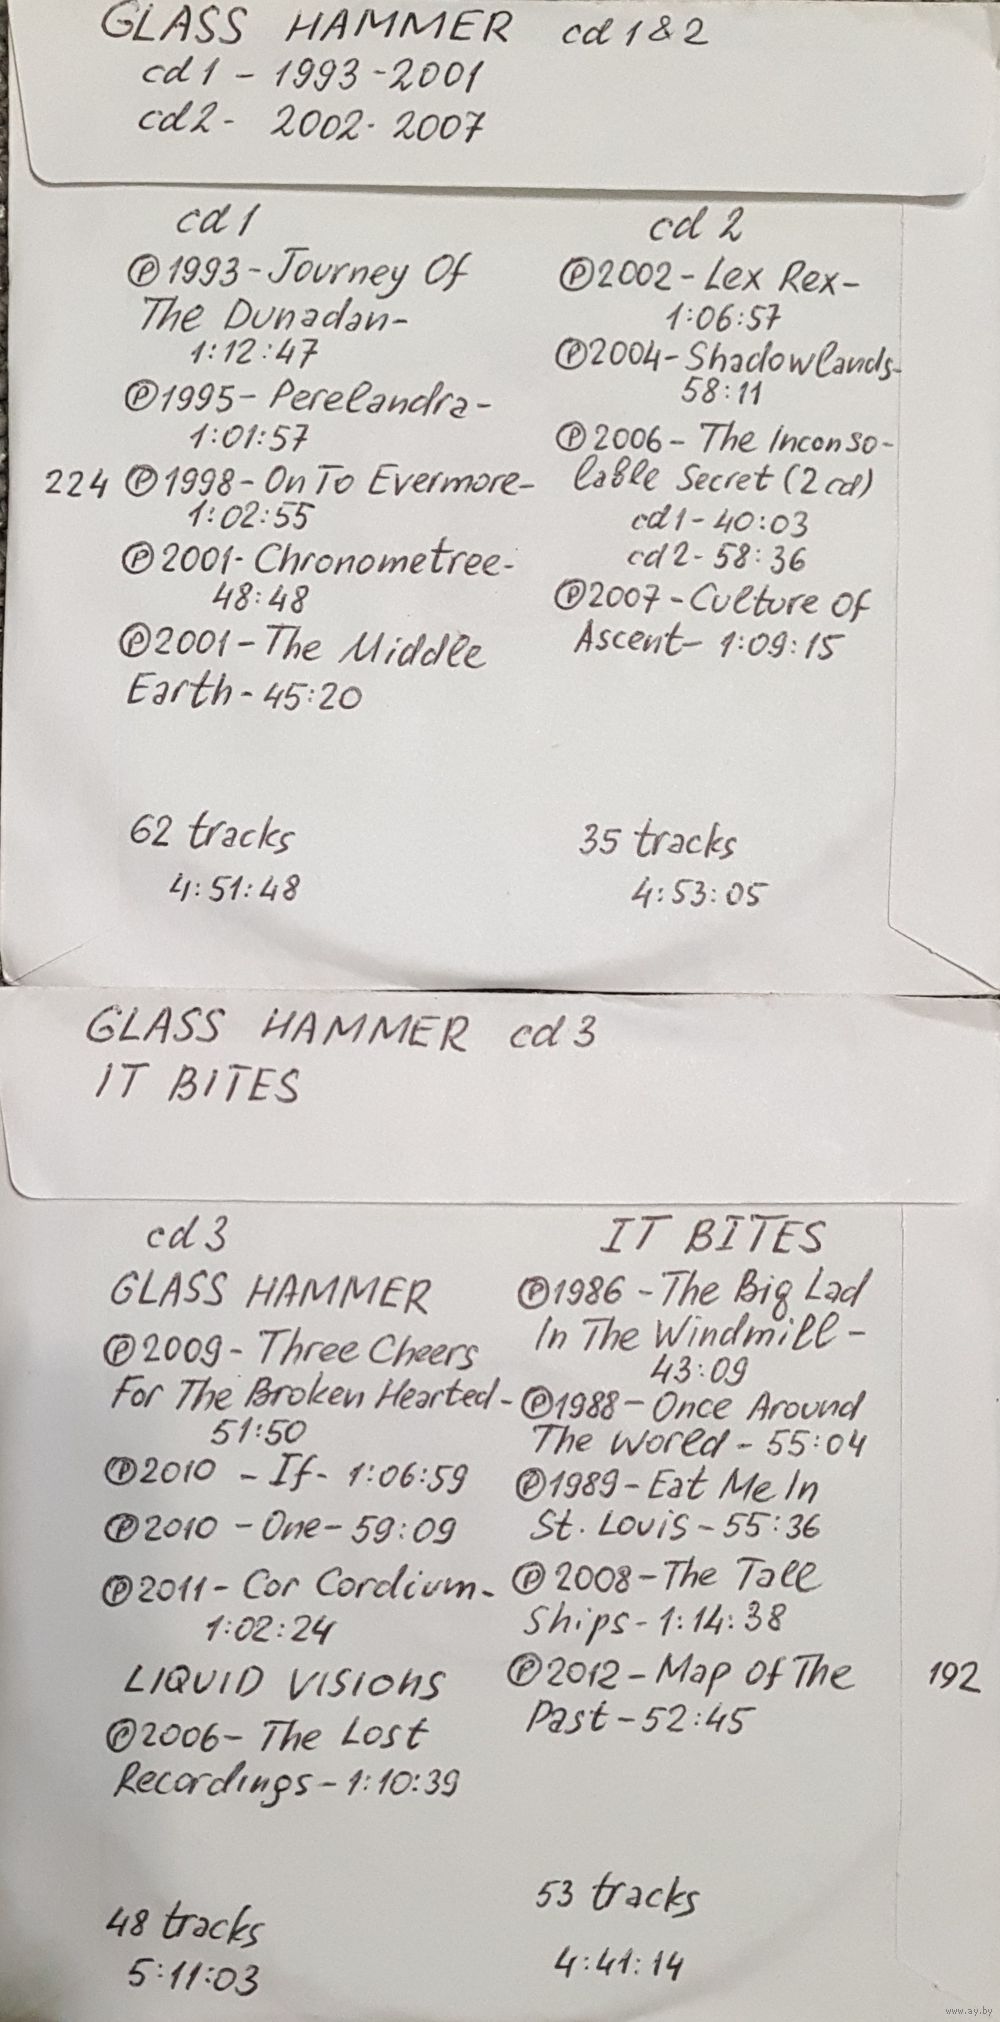 GLASS HAMMER cd 1 & 2
cd 1 - 1993 - 2001
cd 2 - 2002 - 2007
cd 1
Ⓟ 1993 - Journey Of
The Dunadan -
1:12:47
Ⓟ 1995 - Perelandra -
1:01:57
224 Ⓟ 1998 - On To Evermore -
1:02:55
Ⓟ 2001 - Chronometree -
48:48
Ⓟ 2001 - The Middle
Earth - 45:20
62 tracks
4:51:48
cd 2
Ⓟ 2002 - Lex Rex -
1:06:57
Ⓟ 2004 - Shadowlands -
58:11
Ⓟ 2006 - The Inconso-
lable Secret (2 cd)
cd 1 - 40:03
cd 2 - 58:36
Ⓟ 2007 - Culture Of
Ascent - 1:09:15
35 tracks
4:53:05
GLASS HAMMER cd 3
IT BITES
cd 3
GLASS HAMMER
Ⓟ 2009 - Three Cheers
For The Broken Hearted -
51:50
Ⓟ 2010 - If - 1:06:59
Ⓟ 2010 - One - 59:09
Ⓟ 2011 - Cor Cordium -
1:02:24
LIQUID VISIONS
Ⓟ 2006 - The Lost
Recordings - 1:10:39
48 tracks
5:11:03
IT BITES
Ⓟ 1986 - The Big Lad
In The Windmill -
43:09
Ⓟ 1988 - Once Around
The World - 55:04
Ⓟ 1989 - Eat Me In
St. Louis - 55:36
Ⓟ 2008 - The Tall
Ships - 1:14:38
Ⓟ 2012 - Map Of The 192
Past - 52:45
53 tracks
4:41:14
www.ay.by